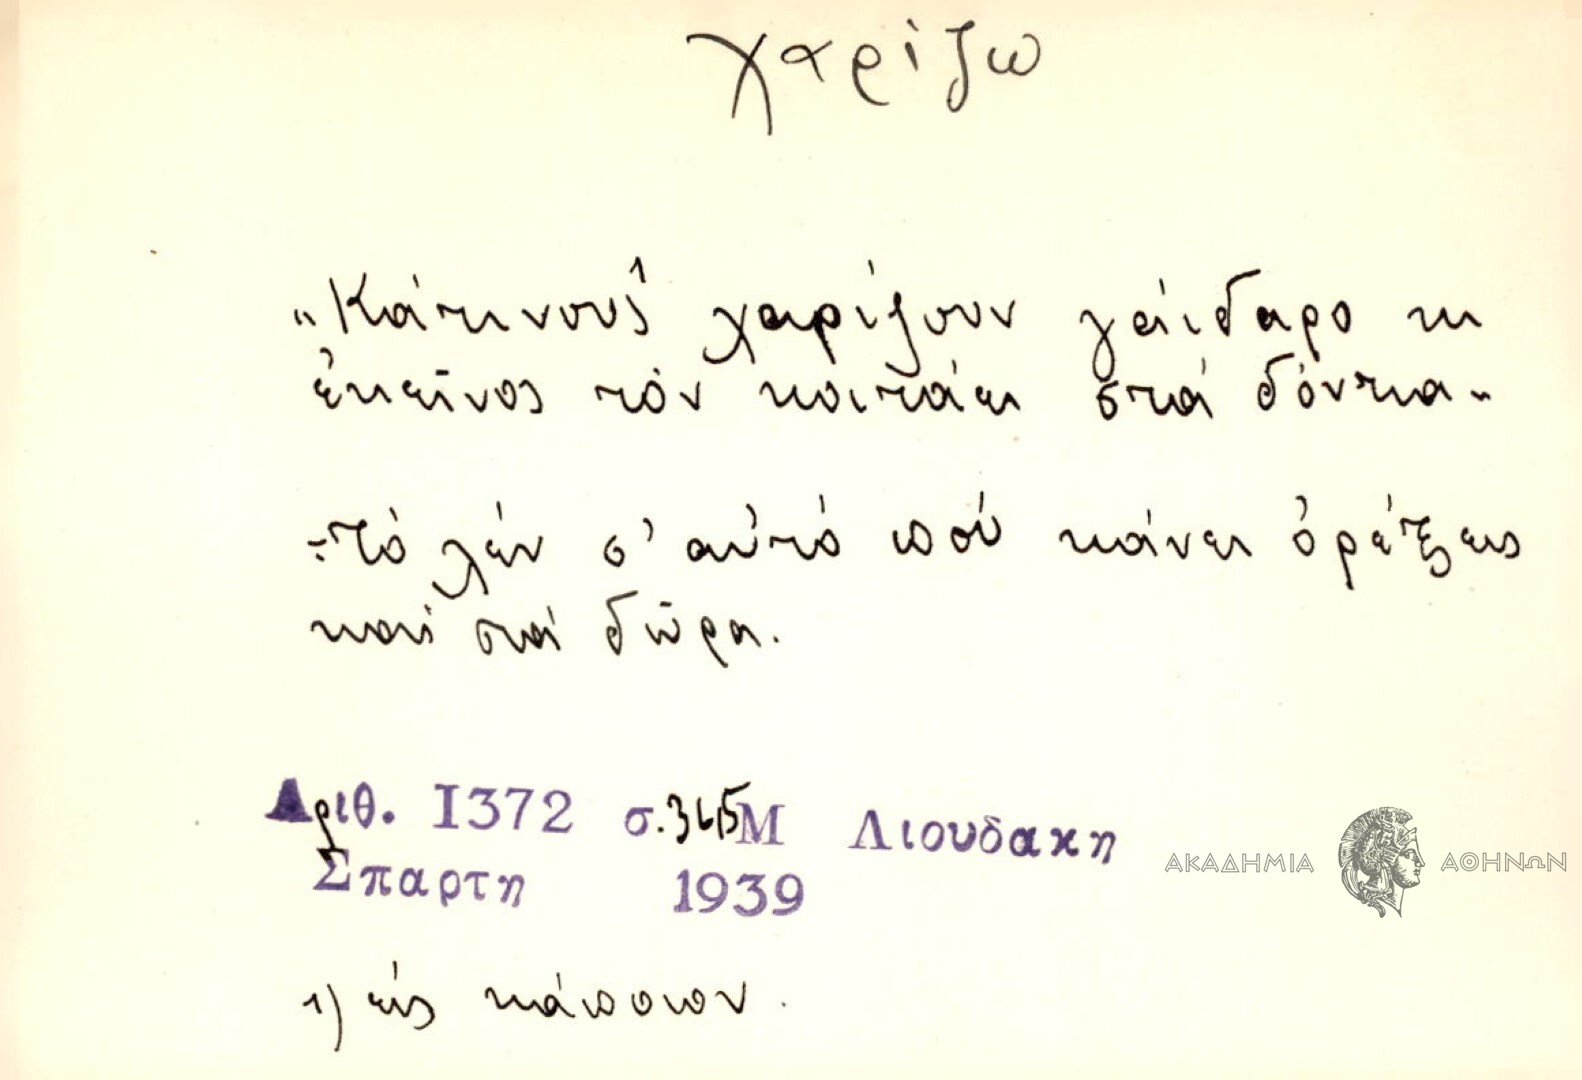 χαρίζω
„Κάτινους¹ χαρίζουν γάϊδαρο κι
ἐκεῖνος τόν κοιτάει στά δόντια„
-Τό λέν σ' αὐτό πού κάνει ὀρέξεις
καί στά δῶρα.
Αριθ. 1372 σ. 315 Μ Λιουδακη
Σπαρτη 1939
ΑΚΑΔΗΜΙΑ ΑΘΗΝΩΝ
1) εἰς κάποιον.